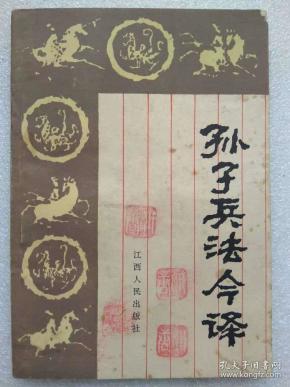 孙子兵法今译
江西人民出版社
孔夫子旧书网